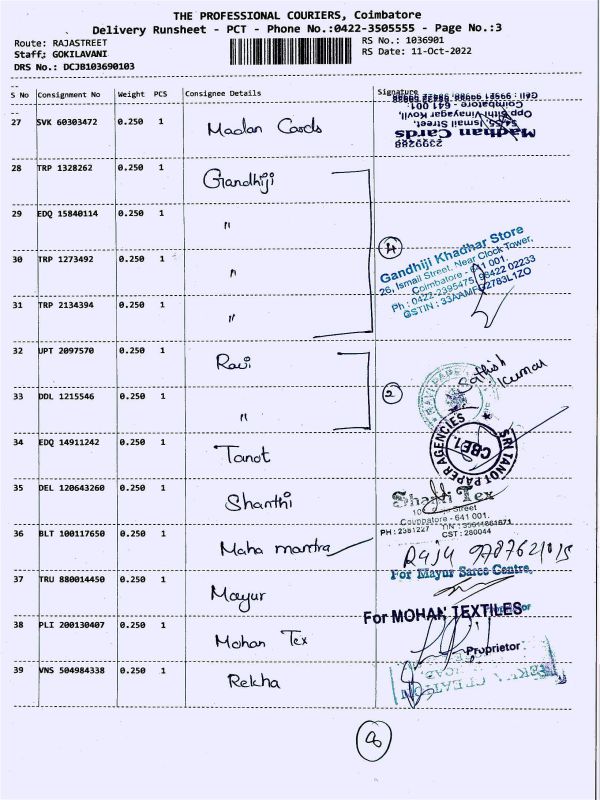 THE PROFESSIONAL COURIERS, Coimbatore
Delivery Runsheet - PCT - Phone No.:0422-3505555 - Page No.:3
Route: RAJASTREET RS No.: 1036901
Staff: GOKILAVANI RS Date: 11-Oct-2022
DRS No.: DCJB103690103
S No Consignment No Weight PCS Consignee Details Signature
27 SVK 60303472 0.250 1 Madan Cards
2399288
Madhan Cards
54/55, Ismail Street,
Opp Sithi Vinayagar Kovil,
Coimbatore - 641 001.
28 TRP 1328262 0.250 1 Gandhiji
29 EDQ 15840114 0.250 1 "
4
30 TRP 1273492 0.250 1 "
Gandhiji Khadhar Store
26, Ismail Street, Near Clock Tower,
Coimbatore - 641 001.
Ph : 0422-2395475, 98422 02233
31 TRP 2134394 0.250 1 "
32 UPT 2097570 0.250 1 Ravi
Sathish Kumar
33 DDL 1215546 0.250 1 "
2
34 EDQ 14911242 0.250 1 Tanot
SRI TANOT PAPER AGENCIES
CBE1.
35 DEL 120643260 0.250 1 Shanthi
Shanti Tex
Street
Coimbatore - 641 001.
PH : 2381227
CST : 280044
36 BLT 100117650 0.250 1 Maha mantra
Raju
For Mayur Saree Centre,
37 TRU 880014450 0.250 1 Mayur
For MOHAN TEXTILES
38 PLI 200130407 0.250 1 Mohan Tex
Proprietor
39 VNS 504984338 0.250 1 Rekha
8